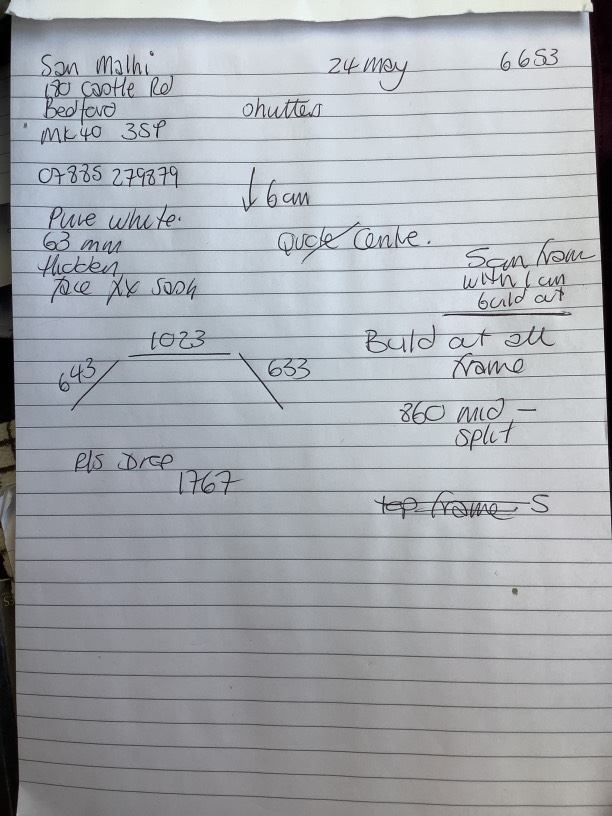 San Malhi
24 May
6653
180 Castle Rd
Bedford
shutters
MK40 3SP
07885 279879
↓ 6 am
Pure white.
63 mm
Quote Centre.
Hidden
face
5cm from
with 1 cm
build out
1023
643
633
Build out all
frame
860 mid -
split
P/s Drop
1767
top frame S